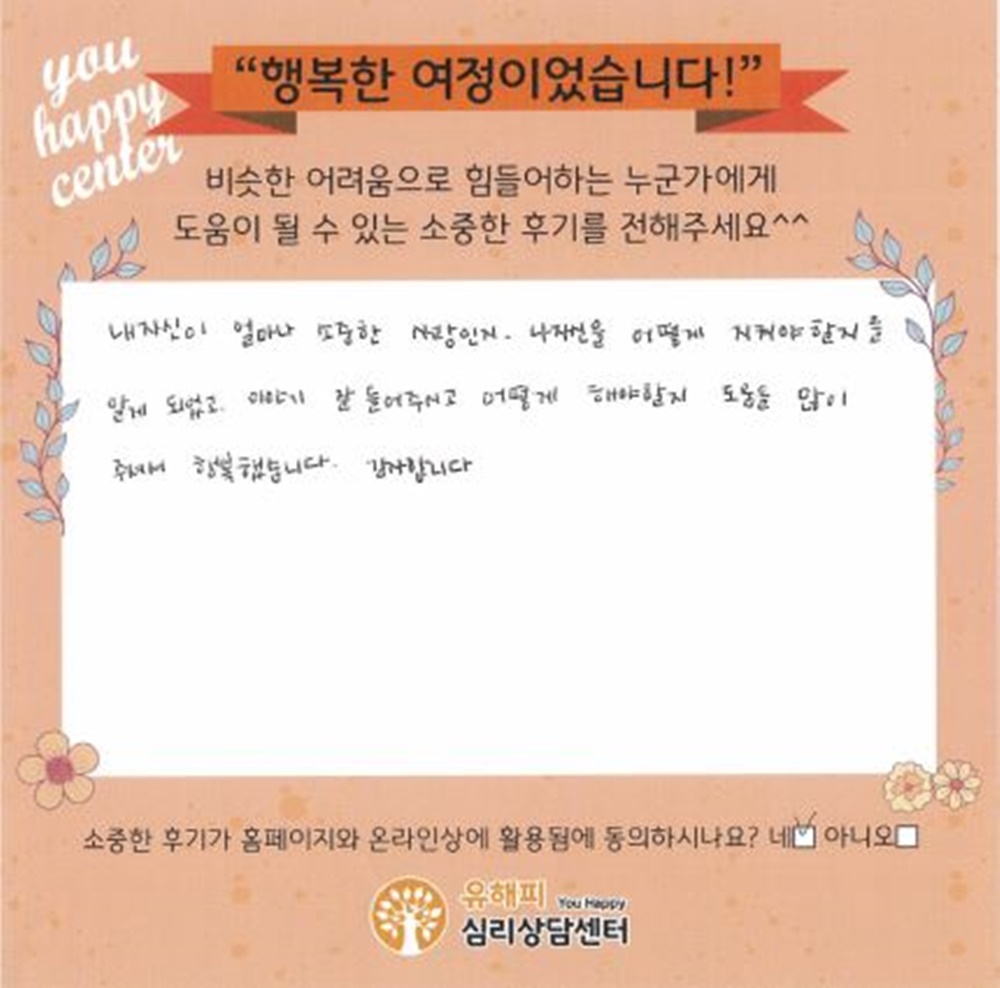 you
happy
center
“행복한 여정이었습니다!”
비슷한 어려움으로 힘들어하는 누군가에게
도움이 될 수 있는 소중한 후기를 전해주세요^^
내자신이 얼마나 소중한 사람인지. 나자신을 어떻게 지켜야할지를
알게 되었고. 이야기 잘 들어주시고 어떻게 해야할지 도움을 많이
주셔서 행복했습니다. 감사합니다
소중한 후기가 홈페이지와 온라인상에 활용됨에 동의하시나요? 네 아니오
유해피 You Happy
심리상담센터